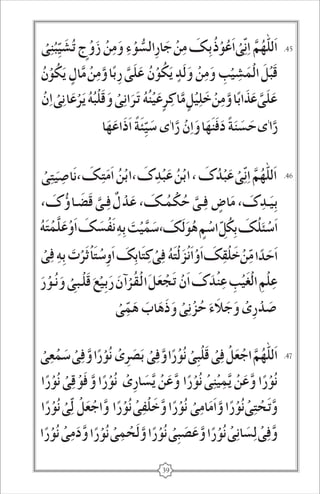 45. اَللّٰهُمَّ اِنِّيْ اَعُوْذُ بِكَ مِنْ جَارِ السُّوْءِ وَ مِنْ زَوْجٍ تُشَيِّبُنِيْ
قَبْلَ الْمَشِيْبِ وَ مِنْ وَلَدٍ يَكُوْنُ عَلَيَّ رِبًا وَّمِنْ مَّالٍ يَكُوْنُ
عَلَيَّ عَذَابًا وَّمِنْ خَلِيْلٍ مَّاكِرٍ عَيْنُهُ تَرَانِيْ وَ قَلْبُهُ يَرْعَانِيْ اِنْ
رَّاٰى حَسَنَةً دَفَنَهَا وَاِنْ رَّاٰى سَيِّئَةً اَذَاعَهَا
46. اَللّٰهُمَّ اِنِّيْ عَبْدُكَ ، ابْنُ عَبْدِكَ،ابْنُ اَمَتِكَ،نَاصِيَتِيْ
بِيَدِكَ، مَاضٍ فِيَّ حُكْمُكَ، عَدْلٌ فِيَّ قَضَاؤُكَ،
اَسْئَلُكَ بِكُلِّ اسْمٍ هُوَلَكَ،سَمَّيْتَ بِهِ نَفْسَكَ اَوْعَلَّمْتَهُ
اَحَدًا مِّنْ خَلْقِكَ اَوْاَنْزَلْتَهُ فِيْ كِتَابِكَ اَوِسْتَأْثَرْتَ بِهِ فِيْ
عِلْمِ الْغَيْبِ عِنْدَكَ اَنْ تَجْعَلَ الْقُرْآنَ رَبِيْعَ قَلْبِيْ وَنُوْرَ
صَدْرِيْ وَجَلَآءَ حُزْنِيْ وَذَهَابَ هَمِّيْ
47. اَللّٰهُمَّ اجْعَلْ فِيْ قَلْبِيْ نُوْرًا وَّفِيْ بَصَرِيْ نُوْرًا وَّ فِيْ سَمْعِيْ
نُوْرًا وَّ عَنْ يَّمِيْنِيْ نُوْرًا وَّ عَنْ يَّسَارِيْ نُوْرًا وَّ فَوْقِيْ نُوْرًا
وَّتَحْتِيْ نُوْرًا وَّاَمَامِيْ نُوْرًا وَّخَلْفِيْ نُوْرًا وَّاجْعَلْ لِّيْ نُوْرًا
وَّفِيْ لِسَانِيْ نُوْرًا وَّعَصَبِيْ نُوْرًا وَّلَحْمِيْ نُوْرًا وَّدَمِيْ نُوْرًا
39